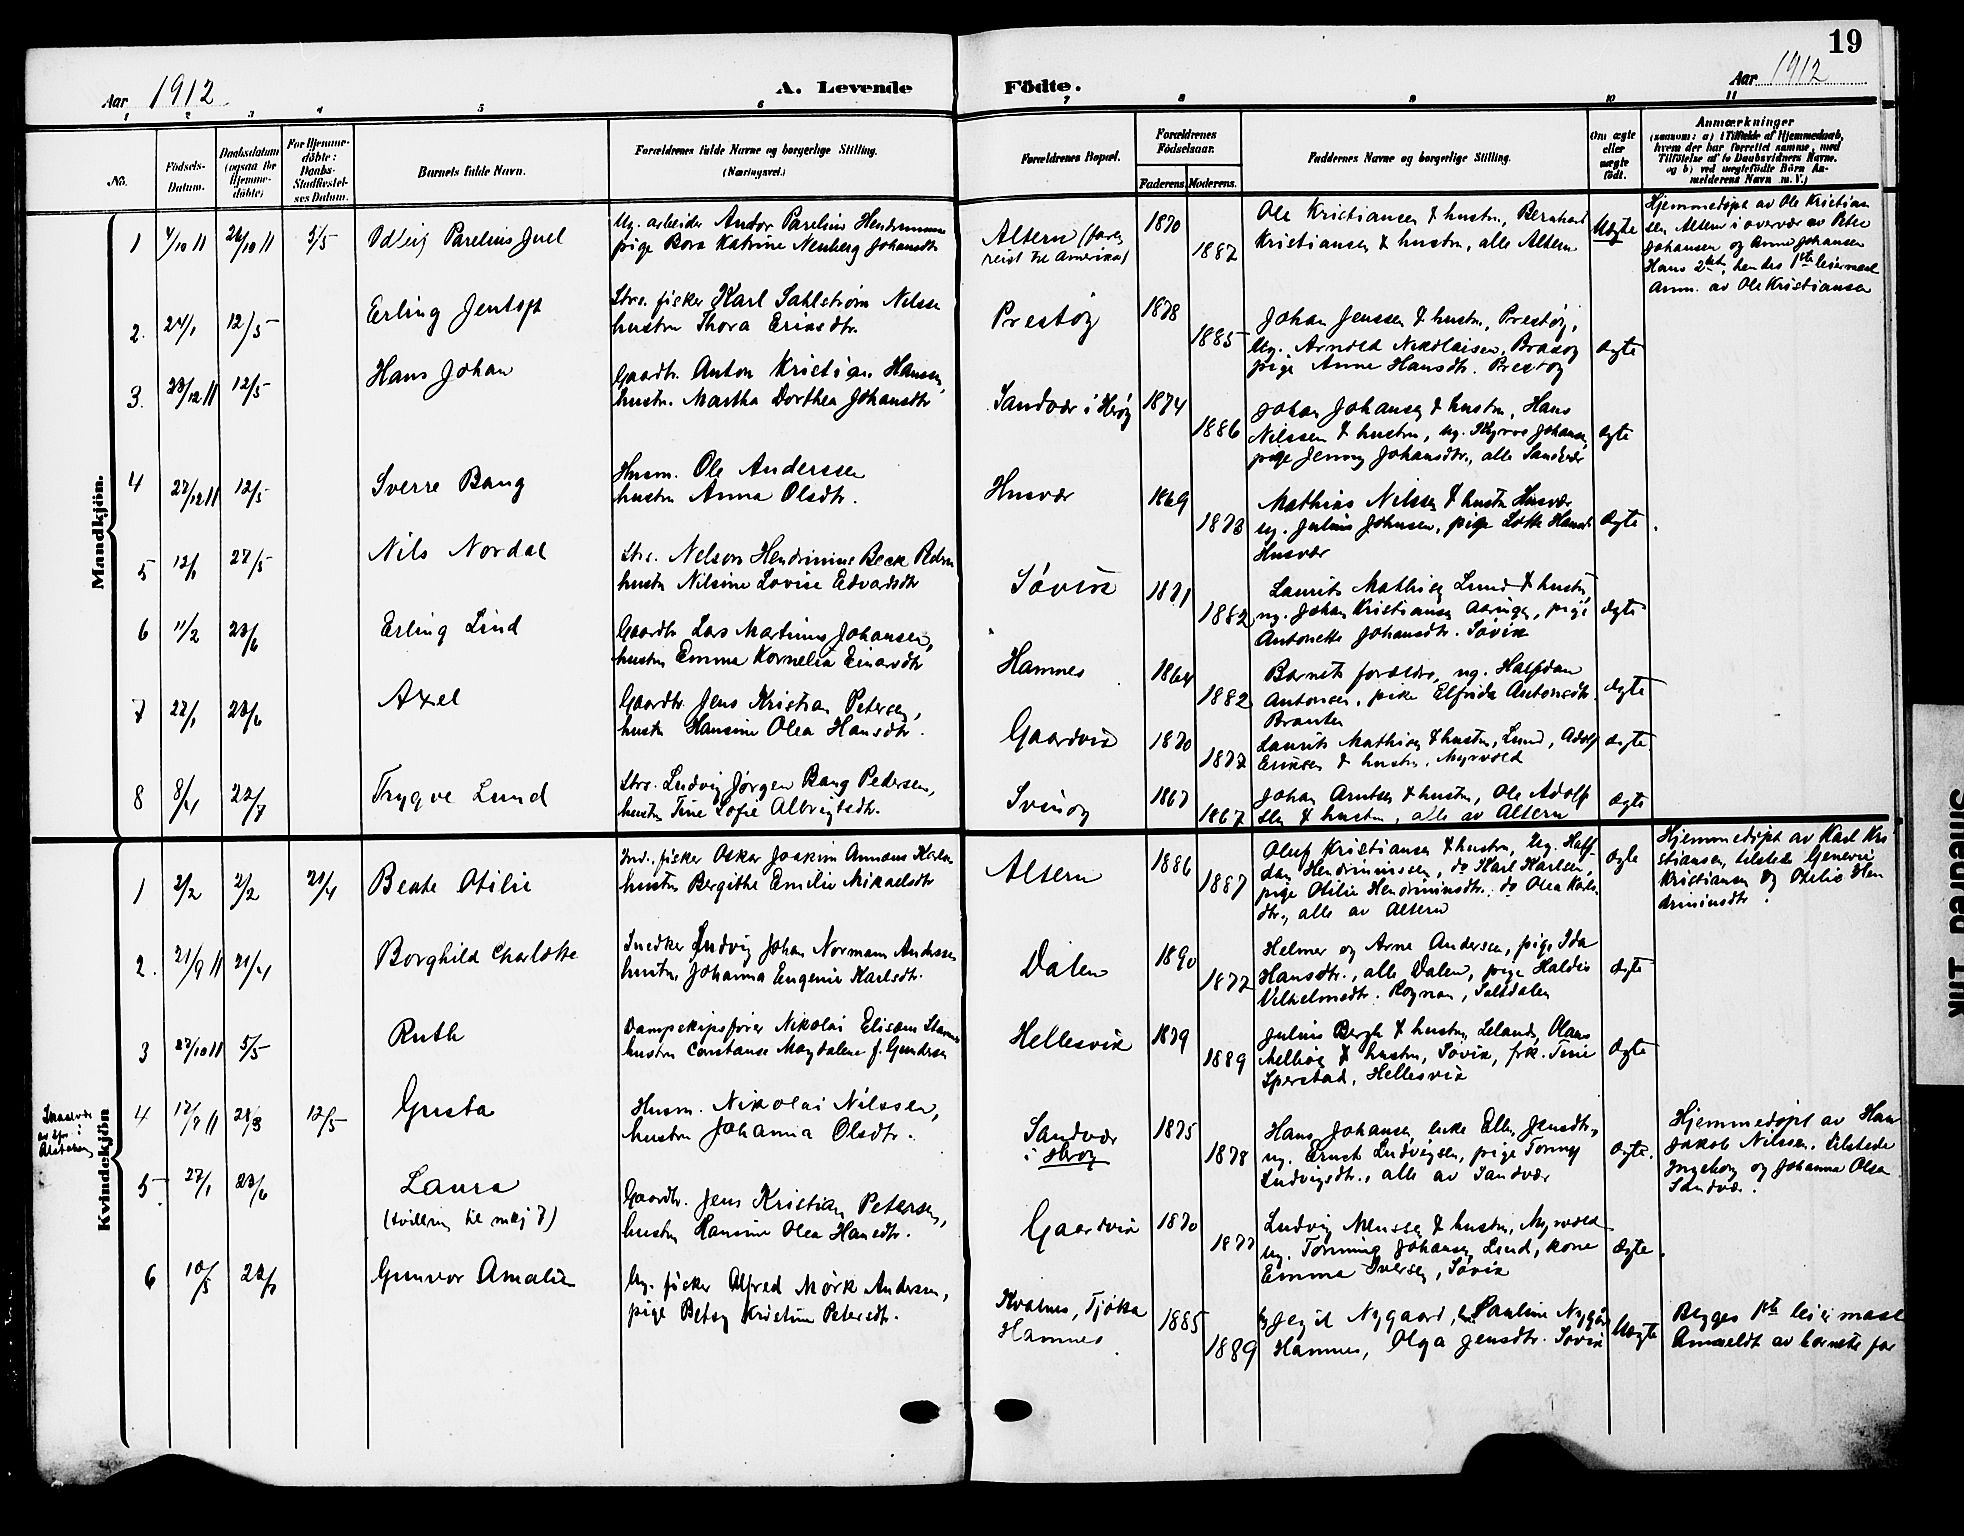 19
Aar 1912
A. Levende
Födte.
Aar 1912
1 2 3 4 5 6 7 8 9 10 11
No.
Födsels-Datum.
Daabsdatum (ogsaa for Hjemme-döbte)
For Hjemme-döbte: Daabs-Stadfæstel-ses Datum.
Barnets fulde Navn.
Forældrenes fulde Navne og borgerlige Stilling. (Næringsvei.)
Forældrenes Bopæl.
Forældrenes Födselsaar.
Faderens. Moderens.
Faddernes Navne og borgerlige Stilling.
Om ægte eller uægte födt.
Anmærkninger
(saasom: a) i Tilfælde af Hjemmedaab, hvem der har forrettet samme, med Tilföielse af to Daabsvidners Navne. og b) ved uægtefödte Börn An-melderens Navn m. V.)
Mandkjön.
1 4/10 11 26/10 11 5/5 Odleij Parelius Juel
Ug. arbeider Andor Parelius
pige Bora Katrine Johansdtr
Altern
reist til Amerika)
1870
1882
Ole Kristiansen & hustru, Bernhard
Kristiansen & hustru, alle Altern
Uægte
Hjemmedøpt av Ole Kristian
sen, Altern i overvær av Peter
Johansen og Anne Johansen
Hans 2det, hendes 1ste leiermaal
Anm. av Ole Kristiansen
2. 24/1 12/5 Erling Jentoft
Strs. fisker Karl Sahlstrøm Nilsen
hustru Thora Eriksdtr.
Prestøy
1878
1885
Johan Jenssen & hustru, Prestøy,
Ug. Arnold Nikolaisen, Brasøy
pige Anne Hansdtr. Prestøy
ægte
3. 23/12 11 12/5 Hans Johan
Gaardbr. Anton Kristian Hansen,
hustru Martha Dorthea Johansdtr
Sandvær i Herøy
1874
1886
Johan Johansen & hustru, Hans
Nilssen & hustru, ug. Johansen,
pige Jenny Johansdtr., alle Sandvær
ægte
4 27/12 11 12/5 Sverre Bang
Husm. Ole Anderssen
hustru Anna Olsdtr.
Husvær
1869
1873
Mathias Nilssen & hustru Husvær
ug. Julius Johnsen, pige Lotte Hansd
Husvær
Ægte.
5 12/1 27/5 Nils Nordal
Strs. Nelson Hendrinius Beck Peders
hustru Nilsine Lovise Edvardsdtr
Søvik
1871
1882
Laurits Mathisen Lund & hustru,
ug. Johan Kristiansen pige
Antonette Johansdtr. Søvik
ægte
6 11/2 23/6 Erling Lind
Gaardbr Lars Martinus Johansen,
hustru Emma Kornelia Einarsdtr
Hamnes
1864
1882
Barnets forældre, ug. Halfdan
Antonsen, pike Elfrida Antonsdtr.
ægte
7 27/1 23/6 Axel
Gaardbr. Jens Kristian Petersen,
hustru Hansine Olea Hansdtr.
Gaardvik
1870
1877
Laurits Mathisen & hustru, Lund, Adolf
Eriksen & hustru, Myrvold
ægte
8 8/4 22/7 Trygve Lund
Strs. Ludvig Jørgen Bang Pedersen,
hustru Tine Sofie Albrigtsdtr.
Svinøy
1867
1867
Johan Arntsen & hustru, Ole Adolf
& hustru, alle av Altern
ægte
Kvindekjön
1 2/2 2/2 21/4 Beate Otilie
Ind. fisker Oskar Joakim Annæus Karlsen
hustru Bergitte Emilie Mikaelsdtr
Altern
1886
1887
Oluf Kristiansen & hustru, Ug. Half
dan Hendriniussen, do Karl Karlsen,
pige Otilie Hendriniusdtr. do Olea Karls
dtr., alle av Altern
ægte
Hjemmedøpt av Karl Kri
stiansen, tilstede
Kristiansen og Otilie Hen
driniusdtr.
2. 21/9 11 21/4 Borghild Charlotte
Snedker Ludvig Johan Normann Andersen
hustru Johanna Eugenie Karlsdtr.
Dalen
1890
1872
Helmer og Arne Andersen, pige Ida
Hansdtr., alle Dalen, pige Haldis
Vilhelmsdtr. Rognan, Saltdalen
ægte
3 27/10 11 5/5 Ruth
Dampskipsfører Nikolai
hustru Constanse Magdalene f. Gundersen
Hellesvik
1879
1889
Julius Bergh & hustru Leland, Olaus
& hustru, Søvik, frk. Tine
Sperstad, Hellesvik
Ægte
4 12/9 11 28/3 12/5 Gusta
Husm. Nikolai Nilssen,
hustru Johanna Olsdtr.
Sandvær
i Herøy
1875
1878
Hans Johansen, enke Ellen Jensdtr.,
ug. Ernst Ludvigsen, pige Tonny
Ludvigsdtr., alle av Sandvær
Ægte.
Hjemmedøpt av Hans
Jakob Nilssen. tilstede
Ingeborg og Johanna Olsen
Sandvær.
5. 27/1 23/6 Laura
(tvilling til 7)
Gaardbr. Jens Kristian Petersen,
hustru Hansine Olea Hansdtr.
Gaardvik
1870
1877
Ludvig & hustru, Myrvold
ug. Johansen, Lund, kone
Emma Iversen, Søvik
Ægte.
6 10/5 22/7 Gunvor Amalie
Ug. fisker Alfred Mørk Andersen,
pige Betsy Kristine Petersdtr.
Kvalnes, Tjøtta
Hamnes
1885
1889
Nygaard, Pauline Nygård
Hamnes, Olga Jensdtr. Søvik
Uægte
Begges 1ste leiermaal
Anmeldt av barnets far